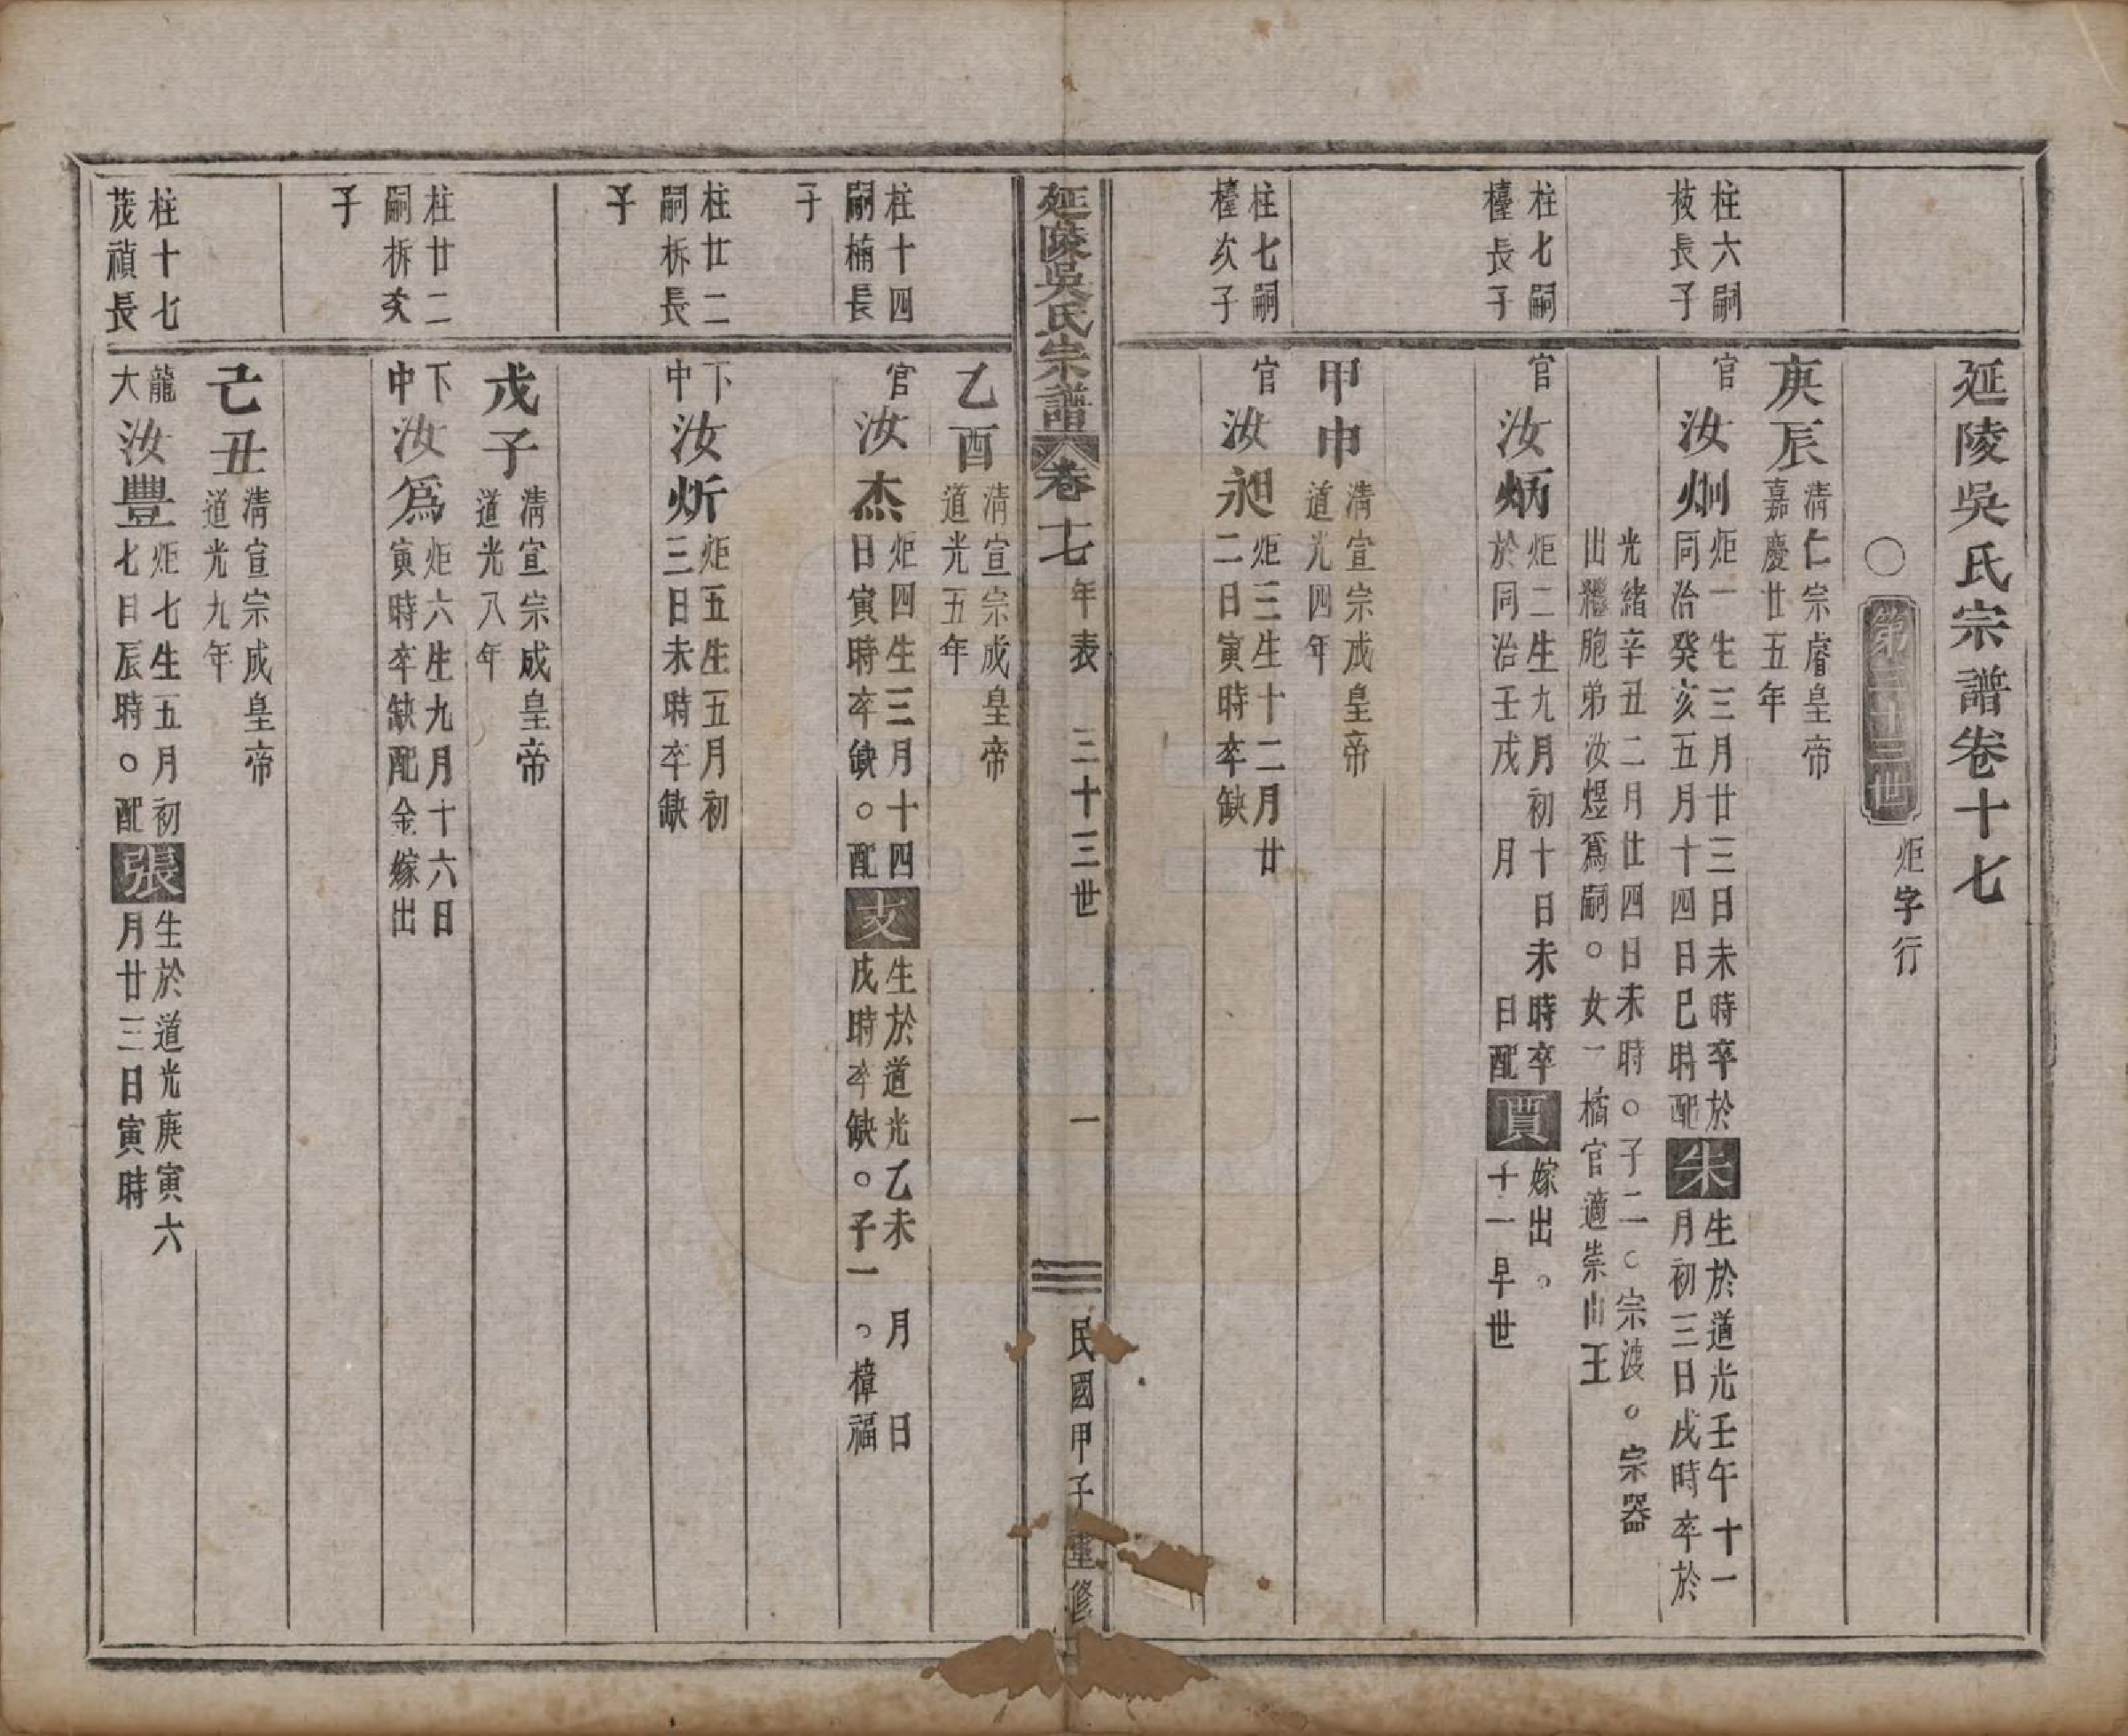 延陵吳氏宗譜卷十七
○ 第三十三世 炬字行
庚辰 清仁宗睿皇帝
嘉慶廿五年
柱六嗣
枝長子
官 汝炯 炬一生三月廿三日未時卒於
同治癸亥五月十四日巳時配 朱 生於道光壬午十一
月初三日戌時卒於
光緒辛丑二月廿四日未時。子二。宗渡。宗器
出繼胞弟汝煜爲嗣。女一橘官適崇山王
柱七嗣
檯長子
官 汝炳 炬二生九月初十日未時卒
於同治壬戌 月 日配 賈 嫁出。
十一早世
甲申 清宣宗成皇帝
道光四年
柱七嗣
檯次子
官 汝昶 炬三生十二月廿
二日寅時卒缺
延陵吳氏宗譜 卷十七 年表 三十三世 一 民國甲子重修
乙酉 清宣宗成皇帝
道光五年
柱十四
嗣楠長
子
官 汝杰 炬四生三月十四
日寅時卒缺。配 支 生於道光乙未 月 日
戌時卒缺。子一。樟福
柱廿二
嗣柝長
子
下
中 汝炘 炬五生五月初
三日未時卒缺
戊子 清宣宗成皇帝
道光八年
柱廿二
嗣柝次
子
下
中 汝爲 炬六生九月十六日
寅時卒缺配金嫁出
己丑 清宣宗成皇帝
道光九年
柱十七
茂禎長
龍
大 汝豐 炬七生五月初
七日辰時。配 張 生於道光庚寅六
月廿三日寅時